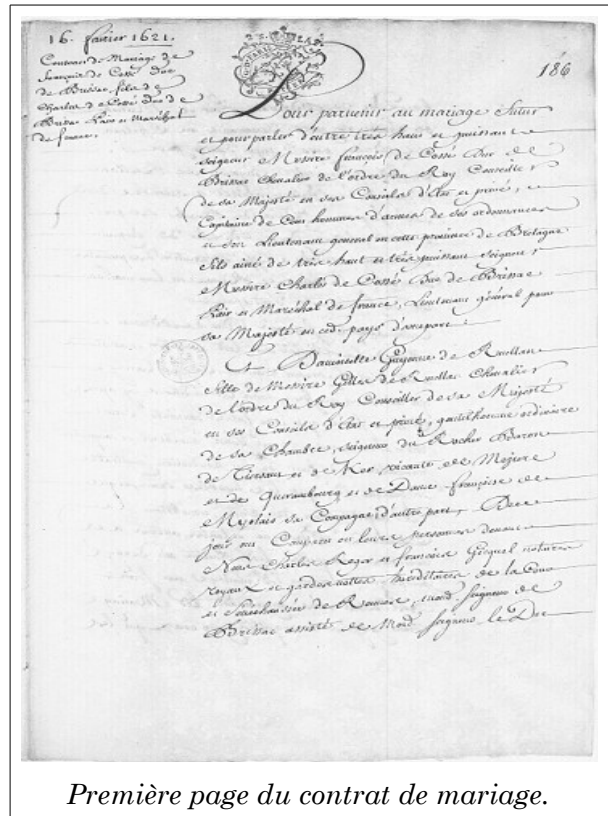 16. fevrier 1621.
Contract de Mariage de
françois de Cossé Duc
de Brissac, fils de
Charles de Cossé Duc de
Brissac Pair et Maréchal
de france.
186
Pour parvenir au mariage futur
et pourparlé d'entre très haut et puissant
seigneur Messire françois de Cossé Duc de
Brissac Chevalier de l'ordre du Roy Conseiller
de sa Majesté en ses Conseils d'Etat et privé,
Capitaine de Cent hommes d'armes de ses ordonnances
et son Lieutenant general en cette province de Bretagne
fils ainé de très haut et très puissant seigneur
Messire Charles de Cossé Duc de Brissac
Pair et Maréchal de france, Lieutenant général pour
sa Majesté en ced. pays d'une part :
Et Guyonne de Ruellan
fille de Messire Gilles de Ruellan Chevalier
de l'ordre du Roy Conseiller de sa Majesté
en ses Conseils d'Etat et privé, gentilhomme ordinaire
de sa Chambre, seigneur du Rocher Baron
de et de
et de et de Dame françoise de
sa Compagne d'autre part,
jour ont Comparu en leurs personnes devant
Nous Charles et françois notaires
royaux et gardenottes hereditaires de la Cour
et Sénéchaussée de Rennes, mond. seigneur de
Brissac assisté de Mond. seigneur le Duc
Première page du contrat de mariage.